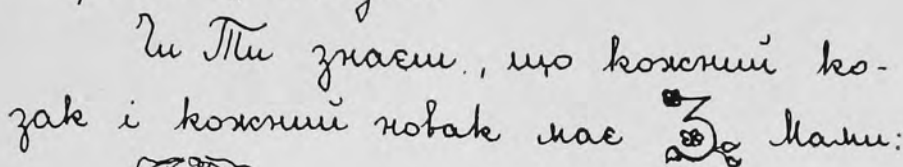 Чи Ти знаєш, що кожний ко-
зак і кожний новак має 3 Мами: